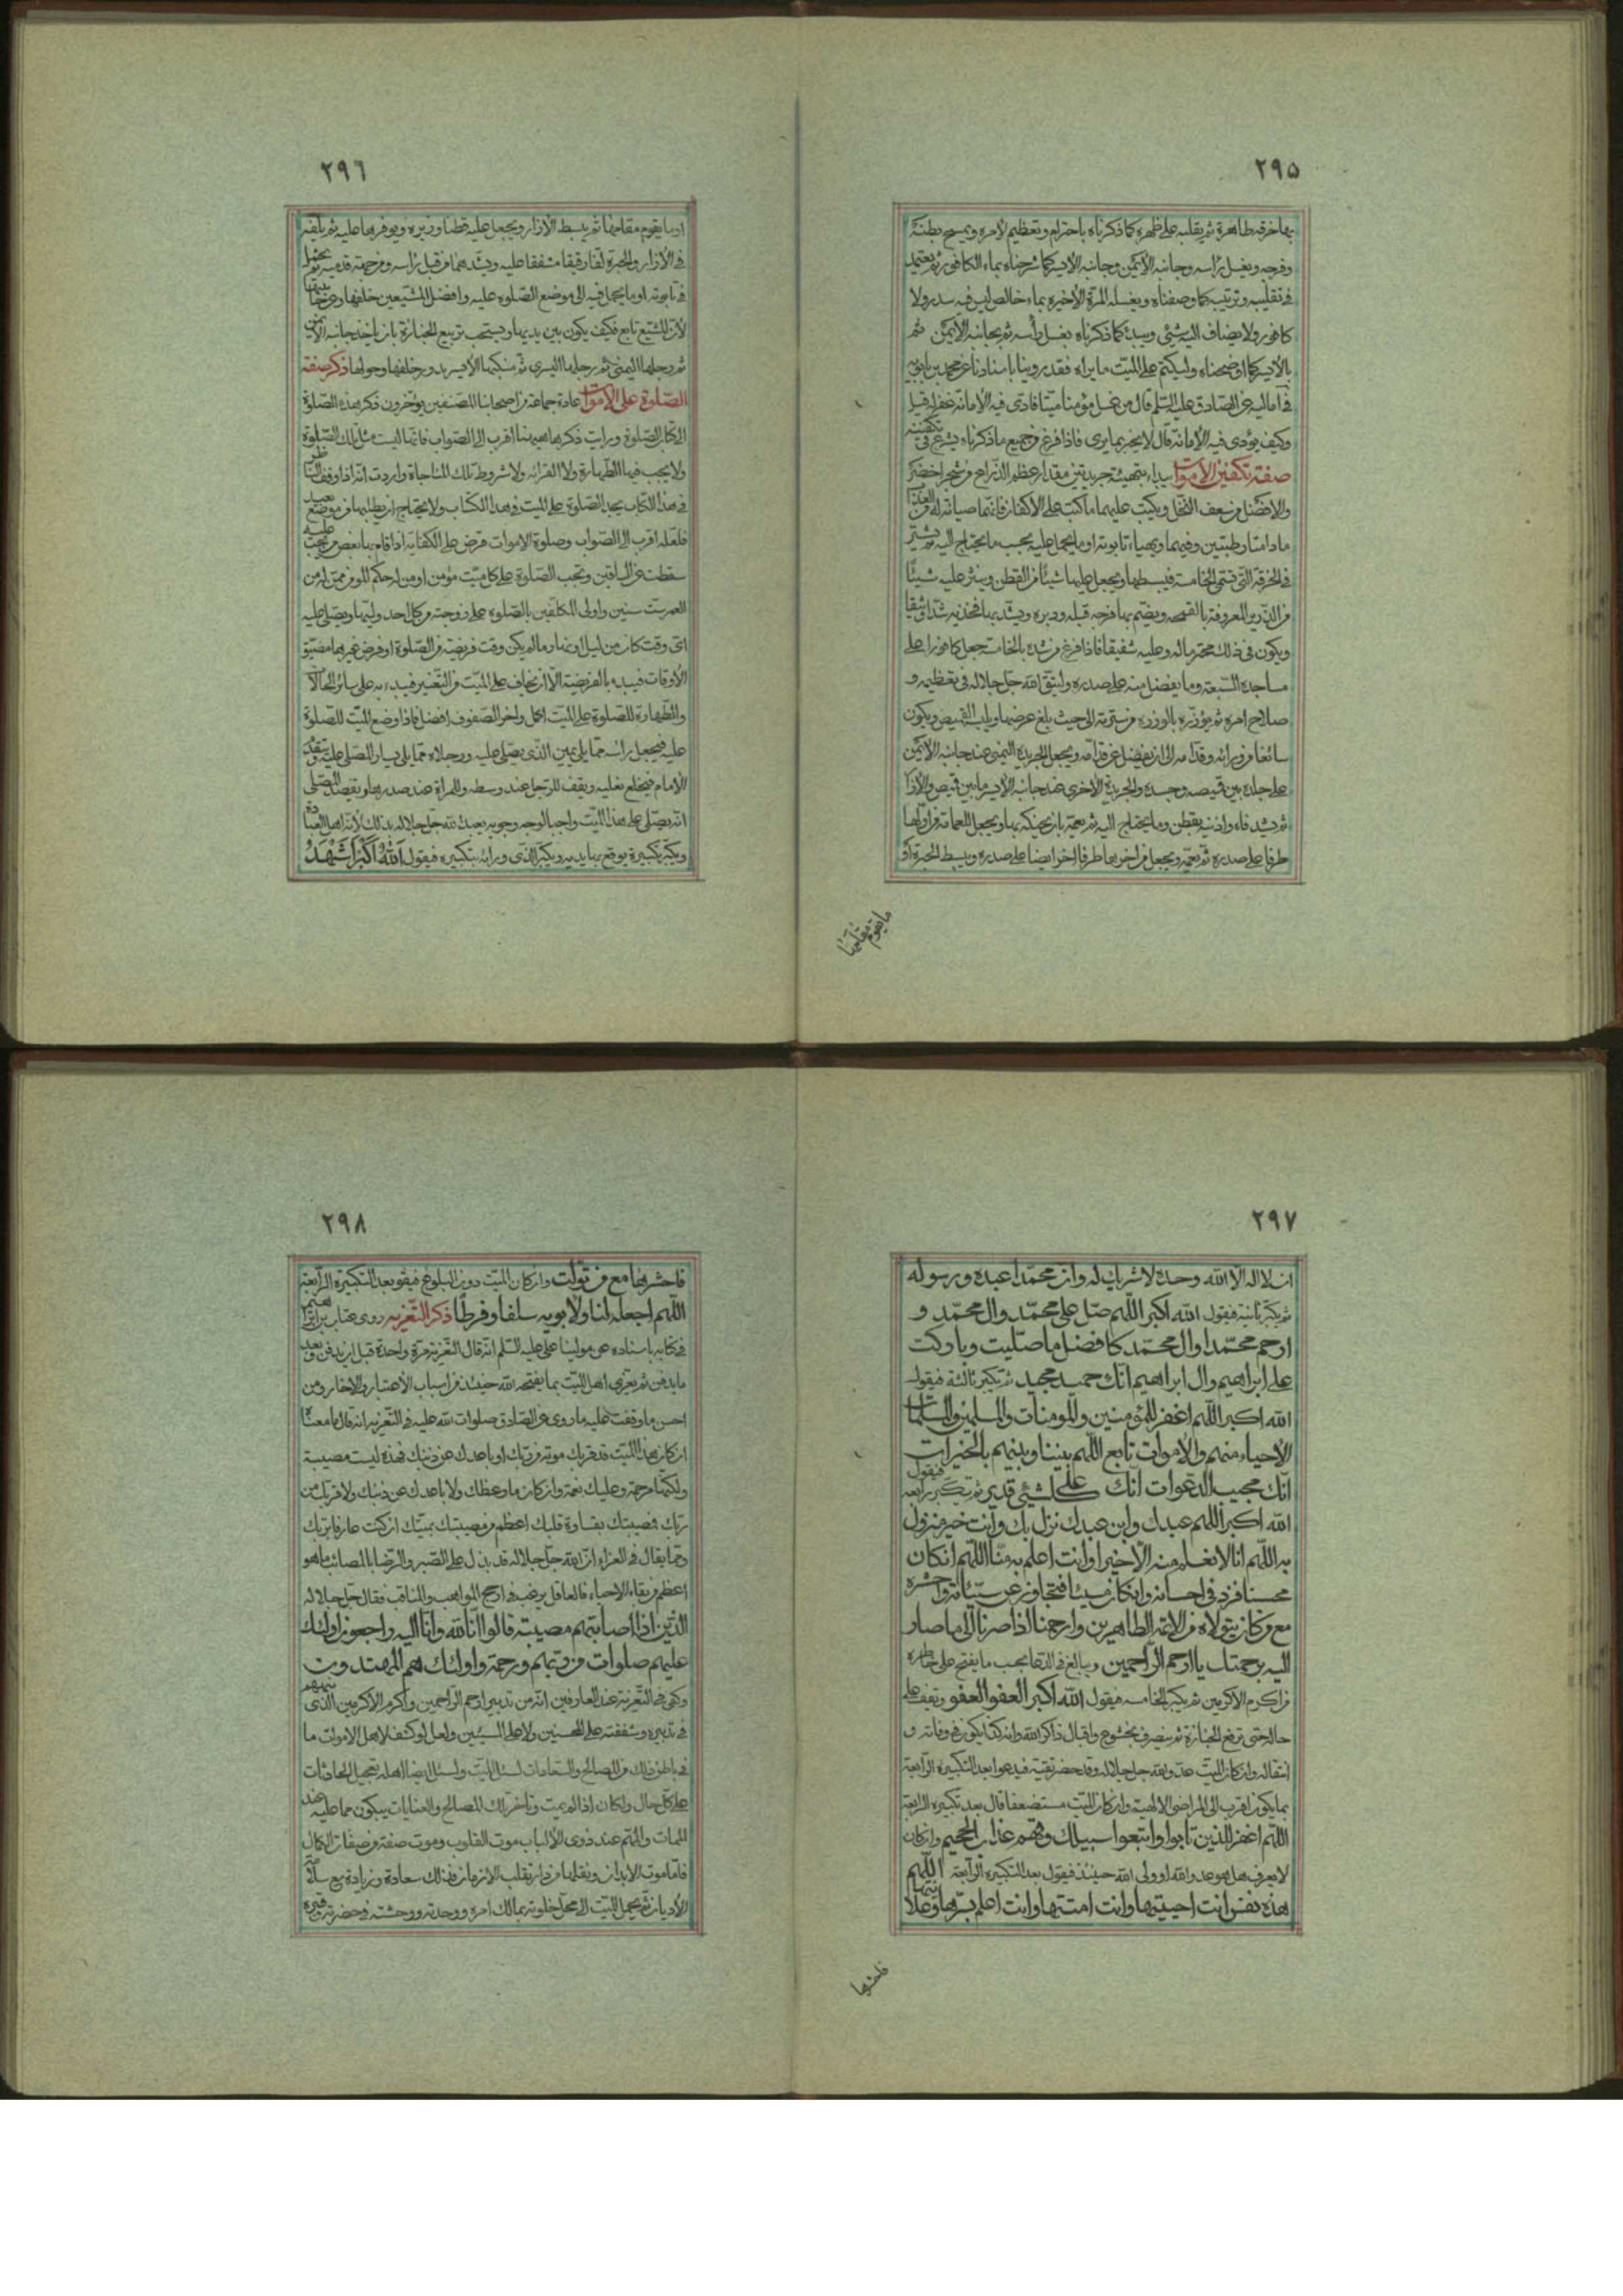 ٢٩٥
بها خرقه طاهرة ثم يقلبه على ظهره كما ذكرناه باحترام وتعظيم لامره ويمسح بطنه
وفرجه ويغسل راسه وجانبه الأيمن وجانبه الأيسر كما شرحناه بماء الكافور ثم يعتمد
فى تقليبه وترتيبه كما وصفناه ويغسله المرة الأخيره بماء خالص ليس فيه سدر ولا
كافور ولا يضاف اليه شيئ ويبدء كما ذكرناه بغسل رأسه ثم بجانبه الأيمن ثم
بالأيسر كما اوضحناه وليكتم على الميّت ما يراه فقد روينا باسنادنا عن محمد بن بابويه
فى اماليه عن الصّادق عليه السّلم قال من غسل مؤمنا ميّتا فادى فيه الأمانة غفر له قيل
وكيف يؤدى فيه الأمانة قال لا يخبر بما يرى فاذا فرغ من جميع ما ذكرناه يشرع فى تكفينه
صفة تكفين الأموات يبداء بتهيئة جريدتين مقدار عظم الذّراع من شجر اخضر
والافضل من سعف النّخل ويكتب عليهما ما كتب على الأكفان فانّهما صيانة له من العذاب
ما دامتا رطبتين وفيهما ويهياء تابوته او ما يحمل عليه بحسب ما يحتاج اليه ثم يشتر
فى الخرقة التّى تسمّى الخامسة فيبسطها ويجعل عليها شيئا من القطن وينثر عليه شيئا
من الذّريرة المعروفة بالقمحه ويضم بها فرجه قبله ودبره ويشد بها فخذيه شدّا وثيقا
ويكون فى ذلك محترما له وعليه شفيقا فاذا فرغ من شده بالخامسة جعل كافورا على
مساجده السّبعة وما يفضل منه على صدره وليتق الله جلّ جلاله فى تعظيمه و
صلاح امره ثم يؤزره بالوزره من سرته الى حيث بلغ عرضها ويلبسه القميص ويكون
سائغا من ورائه وقدّامه الى ان يفضل عن قدّامه ويجعل الجريدة اليمنى عند جانبه الأيمن
على جلده بين قميصه وجسده والجريدة الأخرى عند جانبه الأيسر ما بين قميص والأزار
ثم يشد فاه واذنيه بقطن وما يحتاج اليه ثم يعمّه بان يحنّكه بها ويجعل للعمامة من اوّلها
طرفا على صدره ثم يعمّه ويجعل من اخرها طرفا اخر ايضا على صدره ويبسط الحبرة او
ما يقوم مقامها
٢٩٦
او ما يقوم مقامها ثم يبسط الأزار ويجعل عليه قطنا وذريره ويوفرها عليه ثم يلفّه
فى الأزار والحبرة لفّا رقيقا مشفقا عليه ويشدهما من قبل راسه ومن جهة قدميه ثم يحمل
فى تابوته او ما يحمل فيه الى موضع الصّلوة عليه وافضل المشيّعين خلفها وعن جانبيها
لأن المشيّع تابع فكيف يكون بين يديها ويستحب تربيع الجنازة بان ياخذ جانبه الأيمن
ثم رجلها اليمنى ثم رجلها اليسرى ثم منكبها الأيسر يدور خلفها وحولها ذكر صفة
الصّلوة على الأموات عادة جماعة من اصحابنا المصنّفين يؤخرون ذكر هذه الصّلوة
الى كتاب الصّلوة ورايت ذكرها هيهنا اقرب الى الصّواب فانّها ليست مثل تلك الصّلوة
ولا يجب فيها الطّهارة ولا القرائه ولا شروط تلك المناجاة واردت انّه اذا وقف الناظر
فى هذا الكتاب يجد الصّلوة على الميت فى هذا الكتاب ولا يحتاج ان يطلبها من موضع بعيد
فلعلّه اقرب الى الصّواب وصلوة الاموات فرض على الكفاية اذا قام بها بعض من يجب عليه
سقطت عن الباقين وتجب الصّلوة على كل ميّت مؤمن او من له حكم المؤمن ممّن له من
العمر ستّ سنين واولى المكلّفين بالصّلوة على زوجته من كل احد وليّها ويصلى عليه
اىّ وقت كان من ليل او نهار ما لم يكن وقت فريضة من الصّلوة او فرض غيرها مضيّق
الأوقات فيبدء بالفريضة الّا ان يخاف على الميّت من التّغيير فيبدء به على سائر الحالات
والطّهارة للصّلوة على الميت اكمل واخر الصّفوف افضل فاذا وضع الميّت للصّلوة
عليه فيجعل راسه ممّا يلى يمين الّذى يصلّى عليه ورجلاه ممّا يلى يسار المصلّى عليه ويتقدّم
الأمام فيخلع نعليه ويقف للرّجل عند وسطه وللمراة عند صدرها ويقصد المصلّى
انّه يصلّى على هذا الميّت واجبا لوجه وجوبه يعبد الله جلّ جلاله بذلك لأنه اهل العبادة
ويكبّر تكبيرة يرفع بها يديه ويكبّر الّذى ورائه بتكبيره فيقول الله اكبر اشهد
٢٩٧
ان لا اله الّا الله وحده لا شريك له وان محمّدا عبده ورسوله
ثم يكبّر ثانية فيقول الله اكبر اللّهم صلّ على محمّد وال محمّد و
ارحم محمّدا وال محمّد كافضل ما صلّيت وباركت
على ابراهيم وال ابراهيم انّك حميد مجيد ثم يكبّر ثالثة فيقول
الله اكبر اللّهم اغفر للمؤمنين والمومنات والمسلمين والمسلمات
الأحياء منهم والأموات تابع اللّهم بيننا وبينهم بالخيرات
انّك مجيب الدّعوات انّك على كلّ شيئ قدير ثم يكبّر رابعة فيقول
الله اكبر اللّهم عبدك وابن عبدك نزل بك وانت خير منزول
به اللّهم انّا لا نعلم منه الّا خيرا وانت اعلم به منّا اللّهم ان كان
محسنا فزد فى احسانه وان كان مسيئا فتجاوز عن سيّئاته واحشره
مع من كان يتولّاه من الائمّة الطّاهرين وارحمنا اذا صرنا الى ما صار
اليه برحمتك يا ارحم الرّاحمين ويبالغ فى الدّعا بحسب ما يفتح على خاطره
من اكرم الأكرمين ثم يكبّر الخامسه فيقول الله اكبر العفو العفو ويقف على
حاله حتى ترفع الجنازة ثم ينصرف بخشوع واقبال ذاكرا لله وانه كذا يكون فى وفاته و
انتقاله وان كان الميّت عدوّ الله جلّ جلاله وقد حضر تقيّة فيدعوا بعد التكبيرة الرّابعة
بما يكون اقرب الى المراضى الالهيّة وان كان الميّت مستضعفا قال بعد تكبيره الرّابعة
اللّهم اغفر للذين تابوا واتبعوا سبيلك وقهم عذاب الجحيم وان كان
لا يعرف هل هو عدو الله او ولى الله حينئذ فيقول بعد التكبيرة الرّابعة اللّهم
هذه نفس انت احييتها وانت امتّها وانت اعلم بسرّها وعلانيتها
فاحشرها
٢٩٨
فاحشرها مع من تولّت وان كان الميّت دون البلوغ فيقو بعد التكبيرة الرّابعة
اللّهم اجعله لنا ولأبويه سلفا وفرطا ذكر التّعزيه روى غياب بن ابراهيم
فى كتابه باسناده عن مولينا على عليه السّلم انّه قال التّعزية مرّة واحدة قبل ان يدفن وبعد
ما يدفن ثم يعزى اهل الميّت بما يفتحه الله حينئذ من اسباب الأعتبار والاخار ومن
احسن ما وقفت عليه ما روى عن الصّادق صلوات الله عليه فى التّعزيه انه قال ما معناه
ان كان هذا الميّت قد قربك موته من ربّك او باعدك عن ذنبك فهذه ليست مصيبة
ولكنّها رحمة وعليك نعمة وان كان ما وعظك ولا باعدك عن ذنبك ولا قربك من
ربّك فمصيبتك بقساوة قلبك اعظم من مصيبتك بميّتك ان كنت عارفا بربّك
وممّا يقال فى العزاء انّ الله جلّ جلاله قد بذل على الصّبر والرّضا بالمصائب ما هو
اعظم من بقاء الأحياء فالعاقل يرغب فى ارجح المواهب والمناقب فقال جلّ جلاله
الّذين اذا اصابتهم مصيبة قالوا انّا لله وانّا اليه راجعون اولئك
عليهم صلوات من ربّهم ورحمة واولئك هم المهتدون
وكفى فى التّعزية عند العارفين انّه من تدبير ارحم الرّاحمين واكرم الاكرمين الّذى
فى تدبيره وشفقته على المحسنين ولا على المسيئين ولعل لو كشف لاهل الاموات ما
فى باطن ذلك من المصالح والسّعادات لسئل الميّت ولسئل ايضا اهله تعجيل الحادثات
على كلّ حال ولكان اذا لم يمت وتاخّر تلك المصالح والعنايات يبكون ممّا عليه عند
الممات والمهم عند ذوى الألباب موت القلوب وموت صفة من صفات الكمال
فامّا موت الأبدان ونقلها من دار تقلّب الأزمان فذلك سعادة وزيادة مع سلامة
الأديان ثم يحمل الميّت الى محلّ خلوته بمالك امره ووحدته ووحشته فى حضرته وقبره